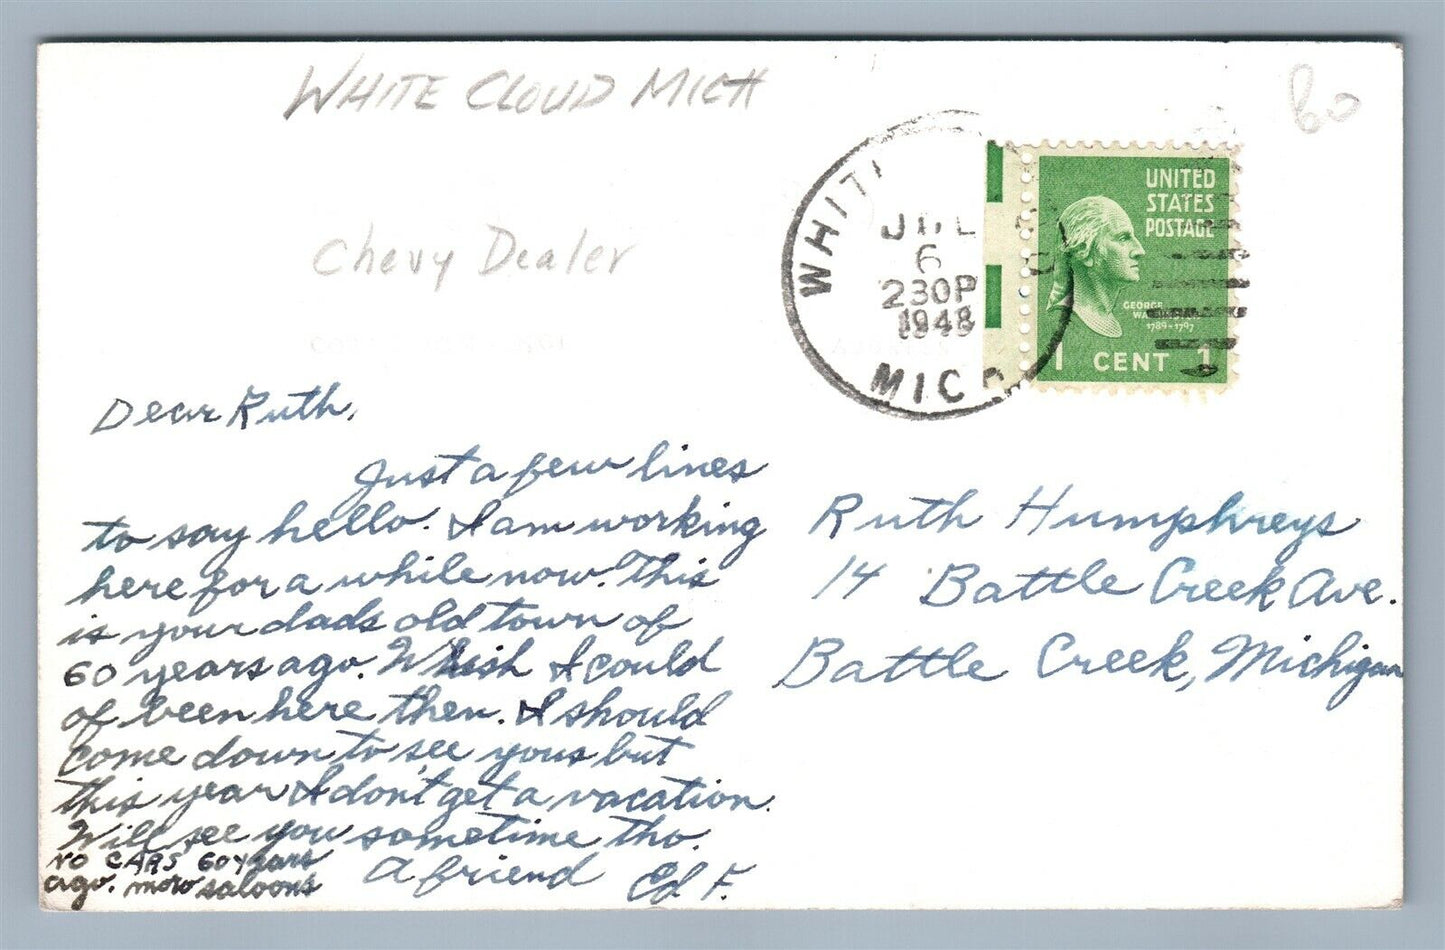 WHITE CLOUD MICH
60
Chevy Dealer
JUL
6
230P
1948
MICH
UNITED
STATES
POSTAGE
GEORGE
1789-1797
1 CENT 1
Dear Ruth,
Just a few lines
to say hello. I am working
here for a while now. This
is your dads old town of
60 years ago. Whish I could
of been here then. I should
come down to see yous but
this year I don't get a vacation.
Will see you sometime tho.
A friend Ed F.
NO CARS 60 years
ago. more saloons
Ruth Humphreys
14 Battle Creek Ave.
Battle Creek, Michigan